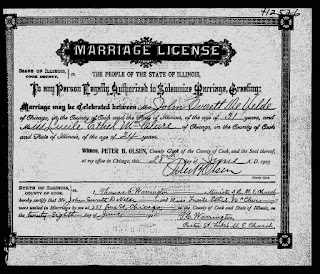 412526
MARRIAGE LICENSE
STATE OF ILLINOIS,
COOK COUNTY.
THE PEOPLE OF THE STATE OF ILLINOIS,
To any Person Legally Authorized to Solemnize Marriage, Greeting:
Marriage may be Celebrated between Mr John Everett
of Chicago, in the County of Cook and State of Illinois, of the age of 21 years, and
Miss Lucile Ethel McClure of Chicago, in the County of Cook
and State of Illinois, of the age of 24 years.
Witness, PETER B. OLSEN, County Clerk of the County of Cook, and the Seal thereof,
at my office in Chicago, this 28 day of June A.D. 1905
Peter B. Olsen
County Clerk
STATE OF ILLINOIS,
COOK COUNTY.
I, Thomas C. Warrington Minister of M. E. Church
hereby certify that Mr. John Everett and Miss Lucile Ethel McClure
were united in Marriage by me at Chicago in the County of Cook and State of Illinois, on
the Twenty Eighth day of June
Warrington
M. E. Church